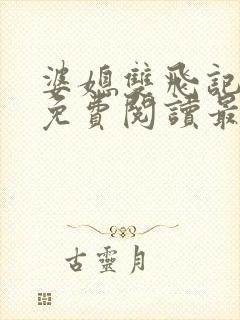 婆媳雙飛記
免費閱讀最
古靈月